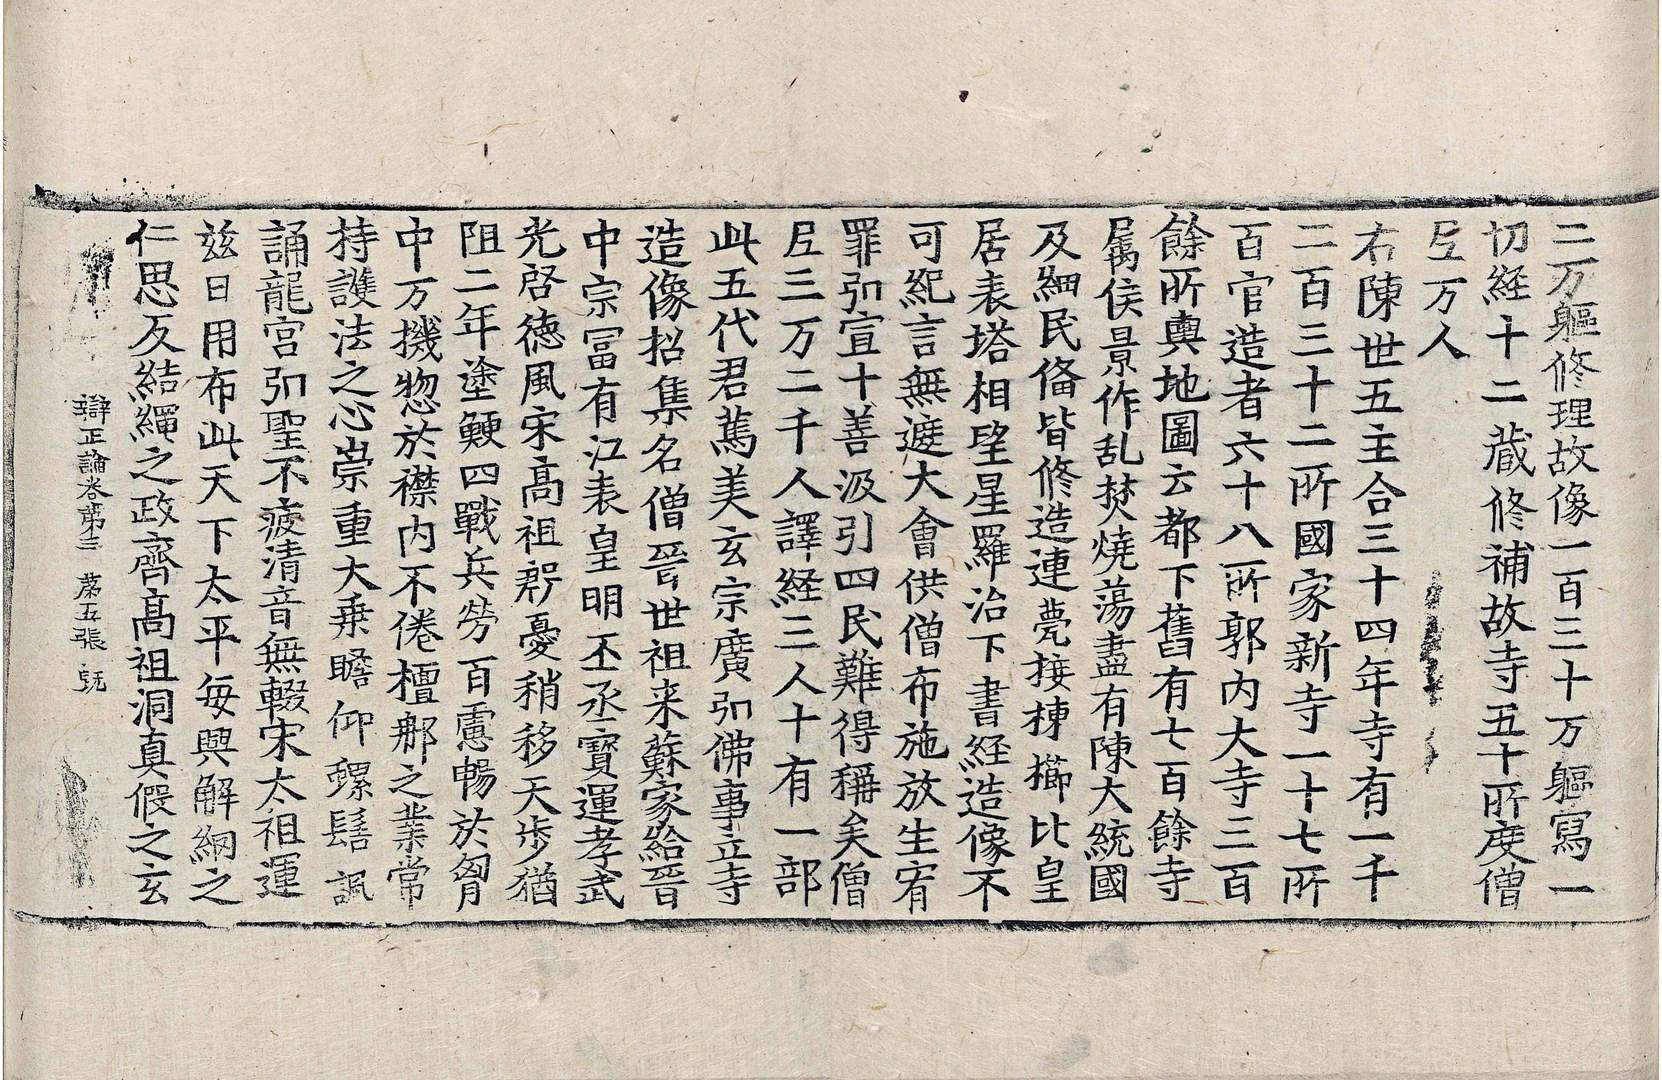 二万軀修理故像一百三十万軀寫一
切経十二藏修補故寺五十所度僧
尼万人
右陳世五主合三十四年寺有一千
二百三十二所國家新寺一十七所
百官造者六十八所郭内大寺三百
餘所輿地圖云都下舊有七百餘寺
屬侯景作乱焚燒蕩盡有陳大統國
及細民俻皆修造連甍接棟櫛比皇
居表塔相望星羅治下書経造像不
可紀言無遮大會供僧布施放生宥
罪弘宣十善汲引四民難得稱矣僧
尼三万二千人譯経三人十有一部
此五代君萬美玄宗廣弘佛事立寺
造像招集名僧晉世祖来蘇家給晉
中宗冨有江表皇明丕丞寶運孝武
光啓德風宋高祖殷憂稍移天步猶
阻二年塗鯁四戰兵勞百慮暢於胷
中万機惣於襟内不倦檀那之業常
持護法之心崇重大乗瞻仰螺髻諷
誦龍宫弘聖不疲清音無輟宋太祖運
兹日用布此天下太平每興解網之
仁思反結繩之政齊高祖洞真假之玄
辯正論卷第三 苐五張 旣